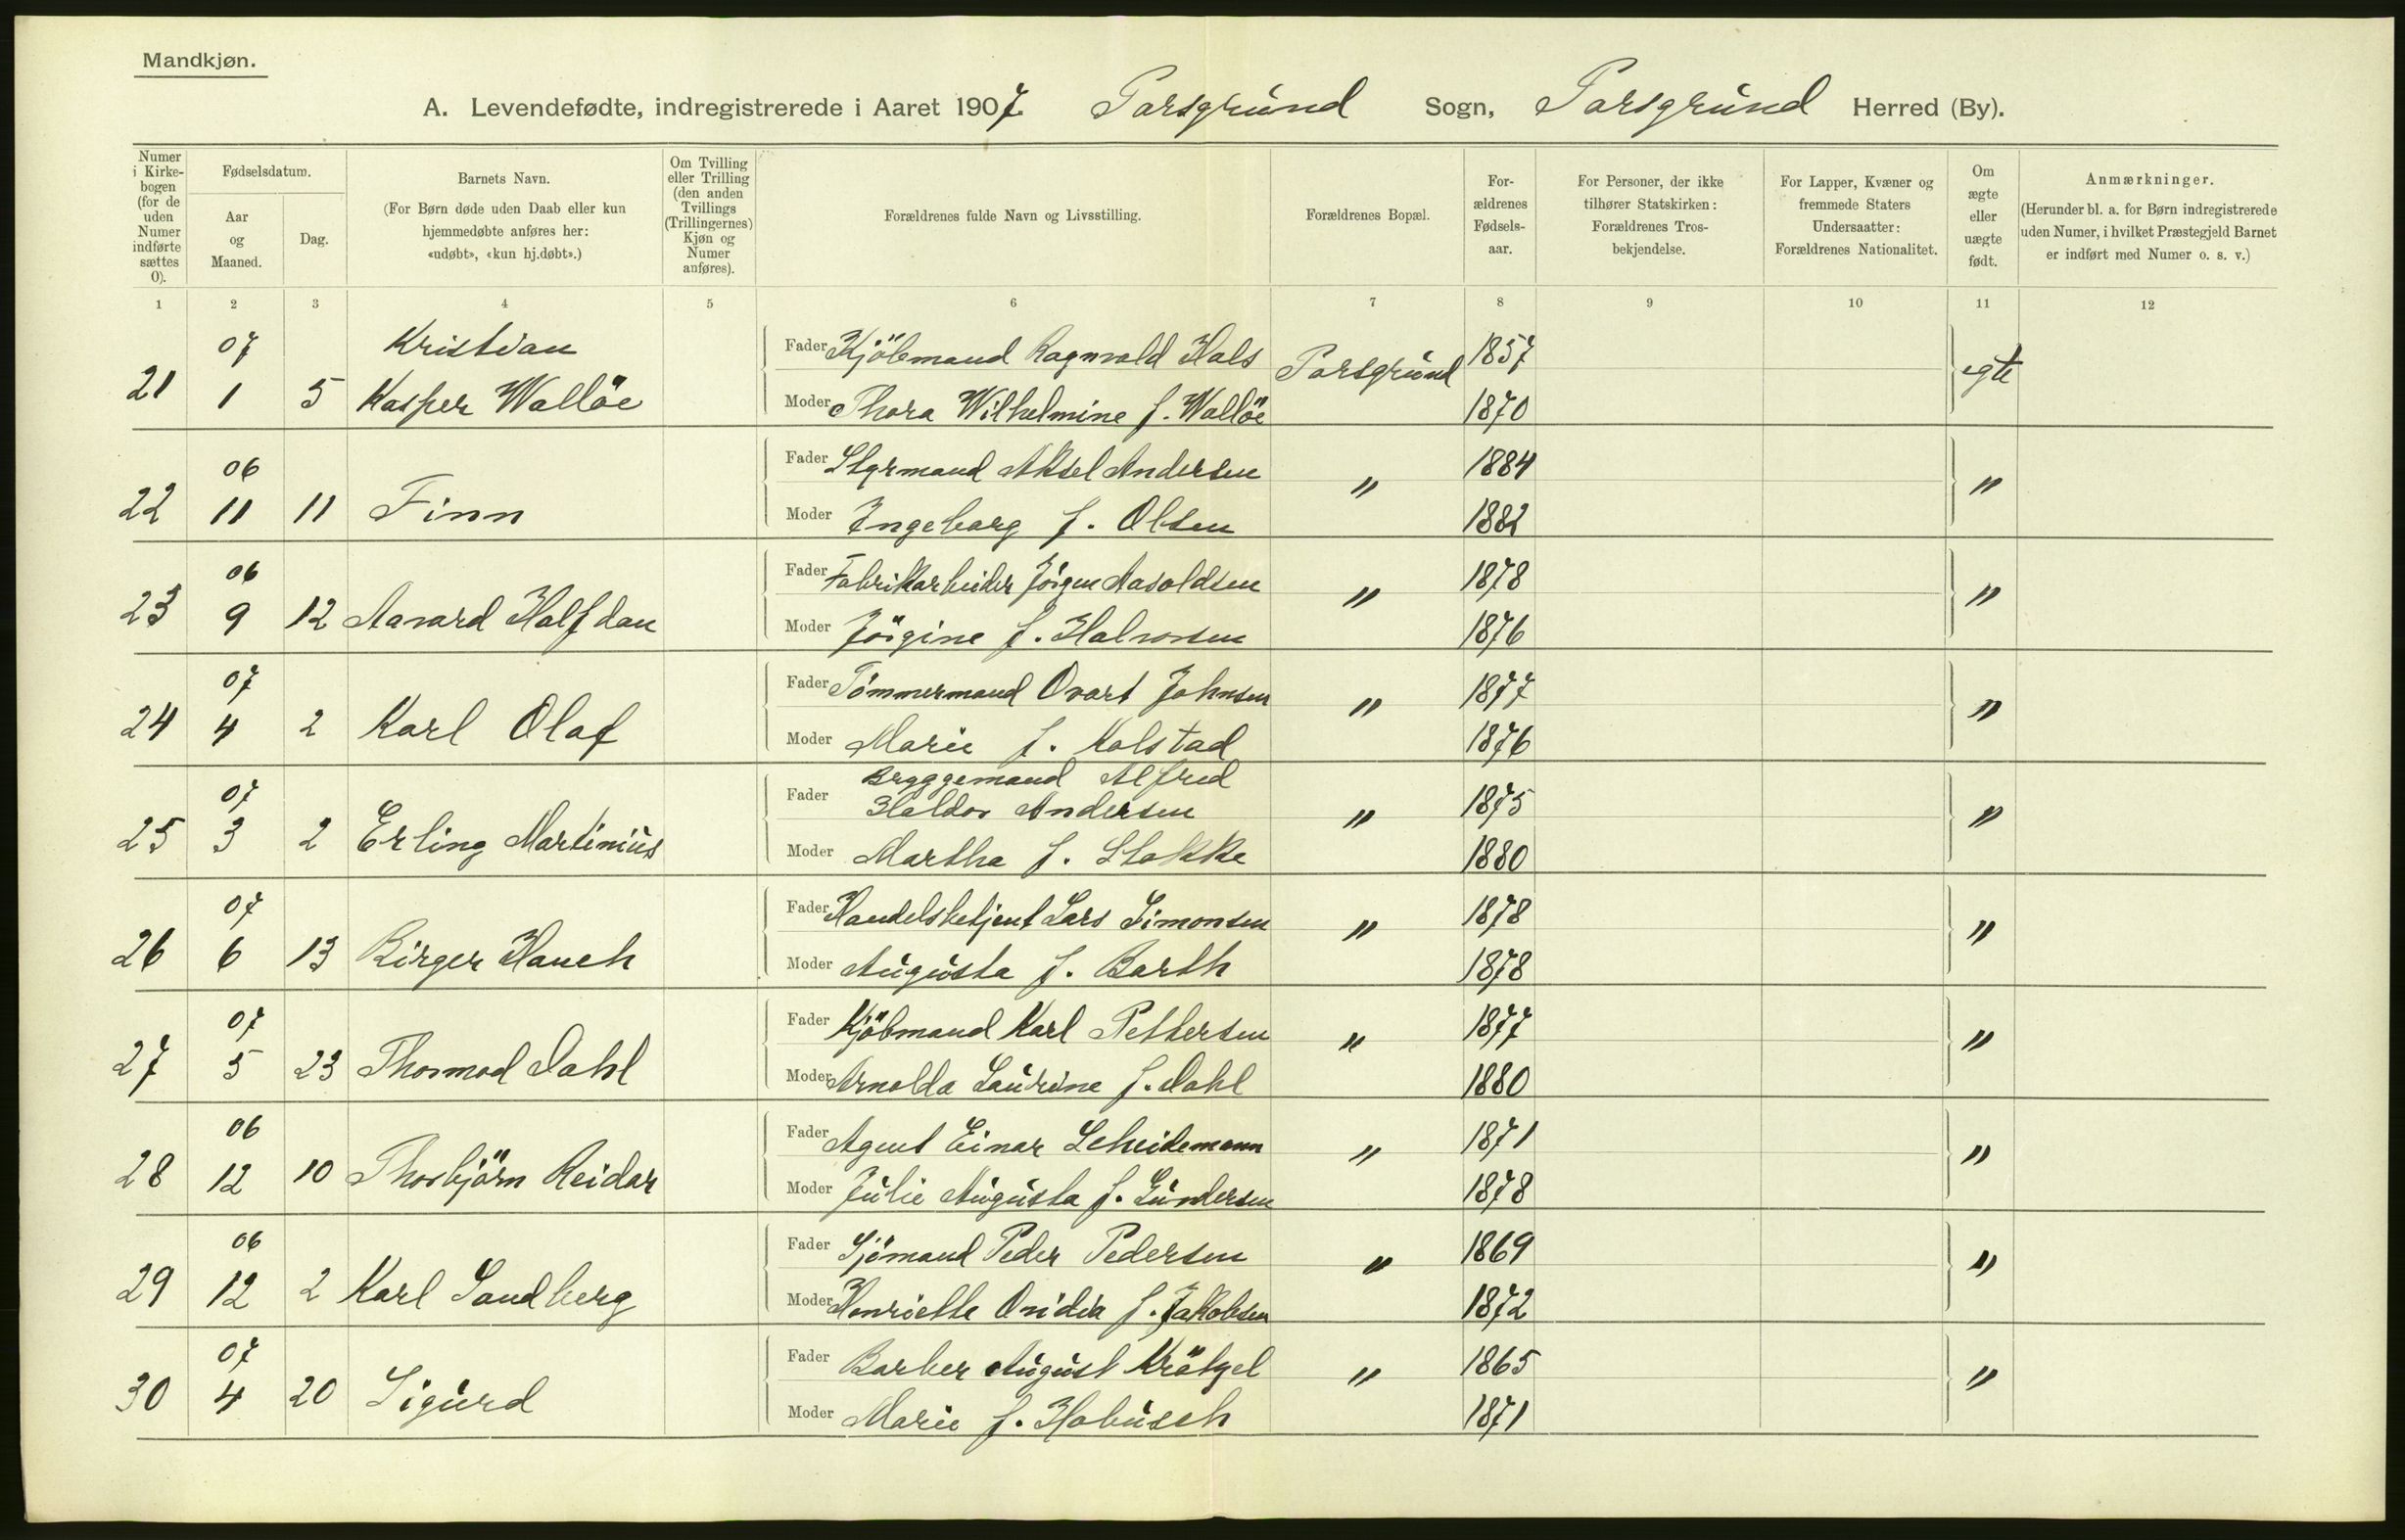 Mandkjøn.
A. Levendefødte, indregistrerede i Aaret 1907. Porsgrund Sogn, Porsgrund Herred (By).
Numer i Kirke-bogen (for de uden Numer indførte sættes 0).
Fødselsdatum.
Aar og Maaned.
Dag.
Barnets Navn.
(For Børn døde uden Daab eller kun hjemmedøbte anføres her: «udøbt», «kun hj.døbt».)
Om Tvilling eller Trilling (den anden Tvillings (Trillingernes) Kjøn og Numer anføres).
Forældrenes fulde Navn og Livsstilling.
Forældrenes Bopæl.
For-ældrenes Fødsels-aar.
For Personer, der ikke tilhører Statskirken: Forældrenes Tros-bekjendelse.
For Lapper, Kvæner og fremmede Staters Undersaatter: Forældrenes Nationalitet.
Om ægte eller uægte født.
Anmærkninger.
(Herunder bl. a. for Børn indregistrerede uden Numer, i hvilket Præstegjeld Barnet er indført med Numer o. s. v.)
1 2 3 4 5 6 7 8 9 10 11 12
07 Kristian Fader Kjöbmand Ragnvald Hals Porsgrund 1857 egte
21 1 5 Kasper Wallöe Moder Thora Wilhelmine f. Wallöe 1870
06 Fader Styrmand Aksel Andersen " 1884 "
22 11 11 Finn Moder Ingeborg f. Olsen 1882
06 Fader Fabrikarbeider Jörgen Aasoldsen " 1878 "
23 9 12 Aavard Halfdan Moder Jörgine f. Halvorsen 1876
07 Fader Tömmermand Ovart Johnsen " 1877 "
24 4 2 Karl Olaf Moder Marie f. Kolstad 1876
07 Fader Bryggemand Alfred
Haldor Andersen " 1875 "
25 3 2 Erling Martinius Moder Martha f. Stokke 1880
07 Fader Handelsbetjent Lars Simonsen " 1878 "
26 6 13 Birger Hauch Moder Augusta f. Barth 1878
07 Fader Kjöbmand Karl Pettersen " 1877 "
27 5 23 Thormod Dahl Moder Arnolda Laurine f. Dahl 1880
06 Fader Agent Einar Scheidemann " 1871 "
28 12 10 Thorbjörn Reidar Moder Julie Augusta f. Gundersen 1878
06 Fader Sjömand Peder Pedersen " 1869 "
29 12 2 Karl Sandberg Moder Henriette Ovidia f. Jakobsen 1872
07 Fader Barber August Krötzel " 1865 "
30 4 20 Sigurd Moder Marie f. Habusch 1871